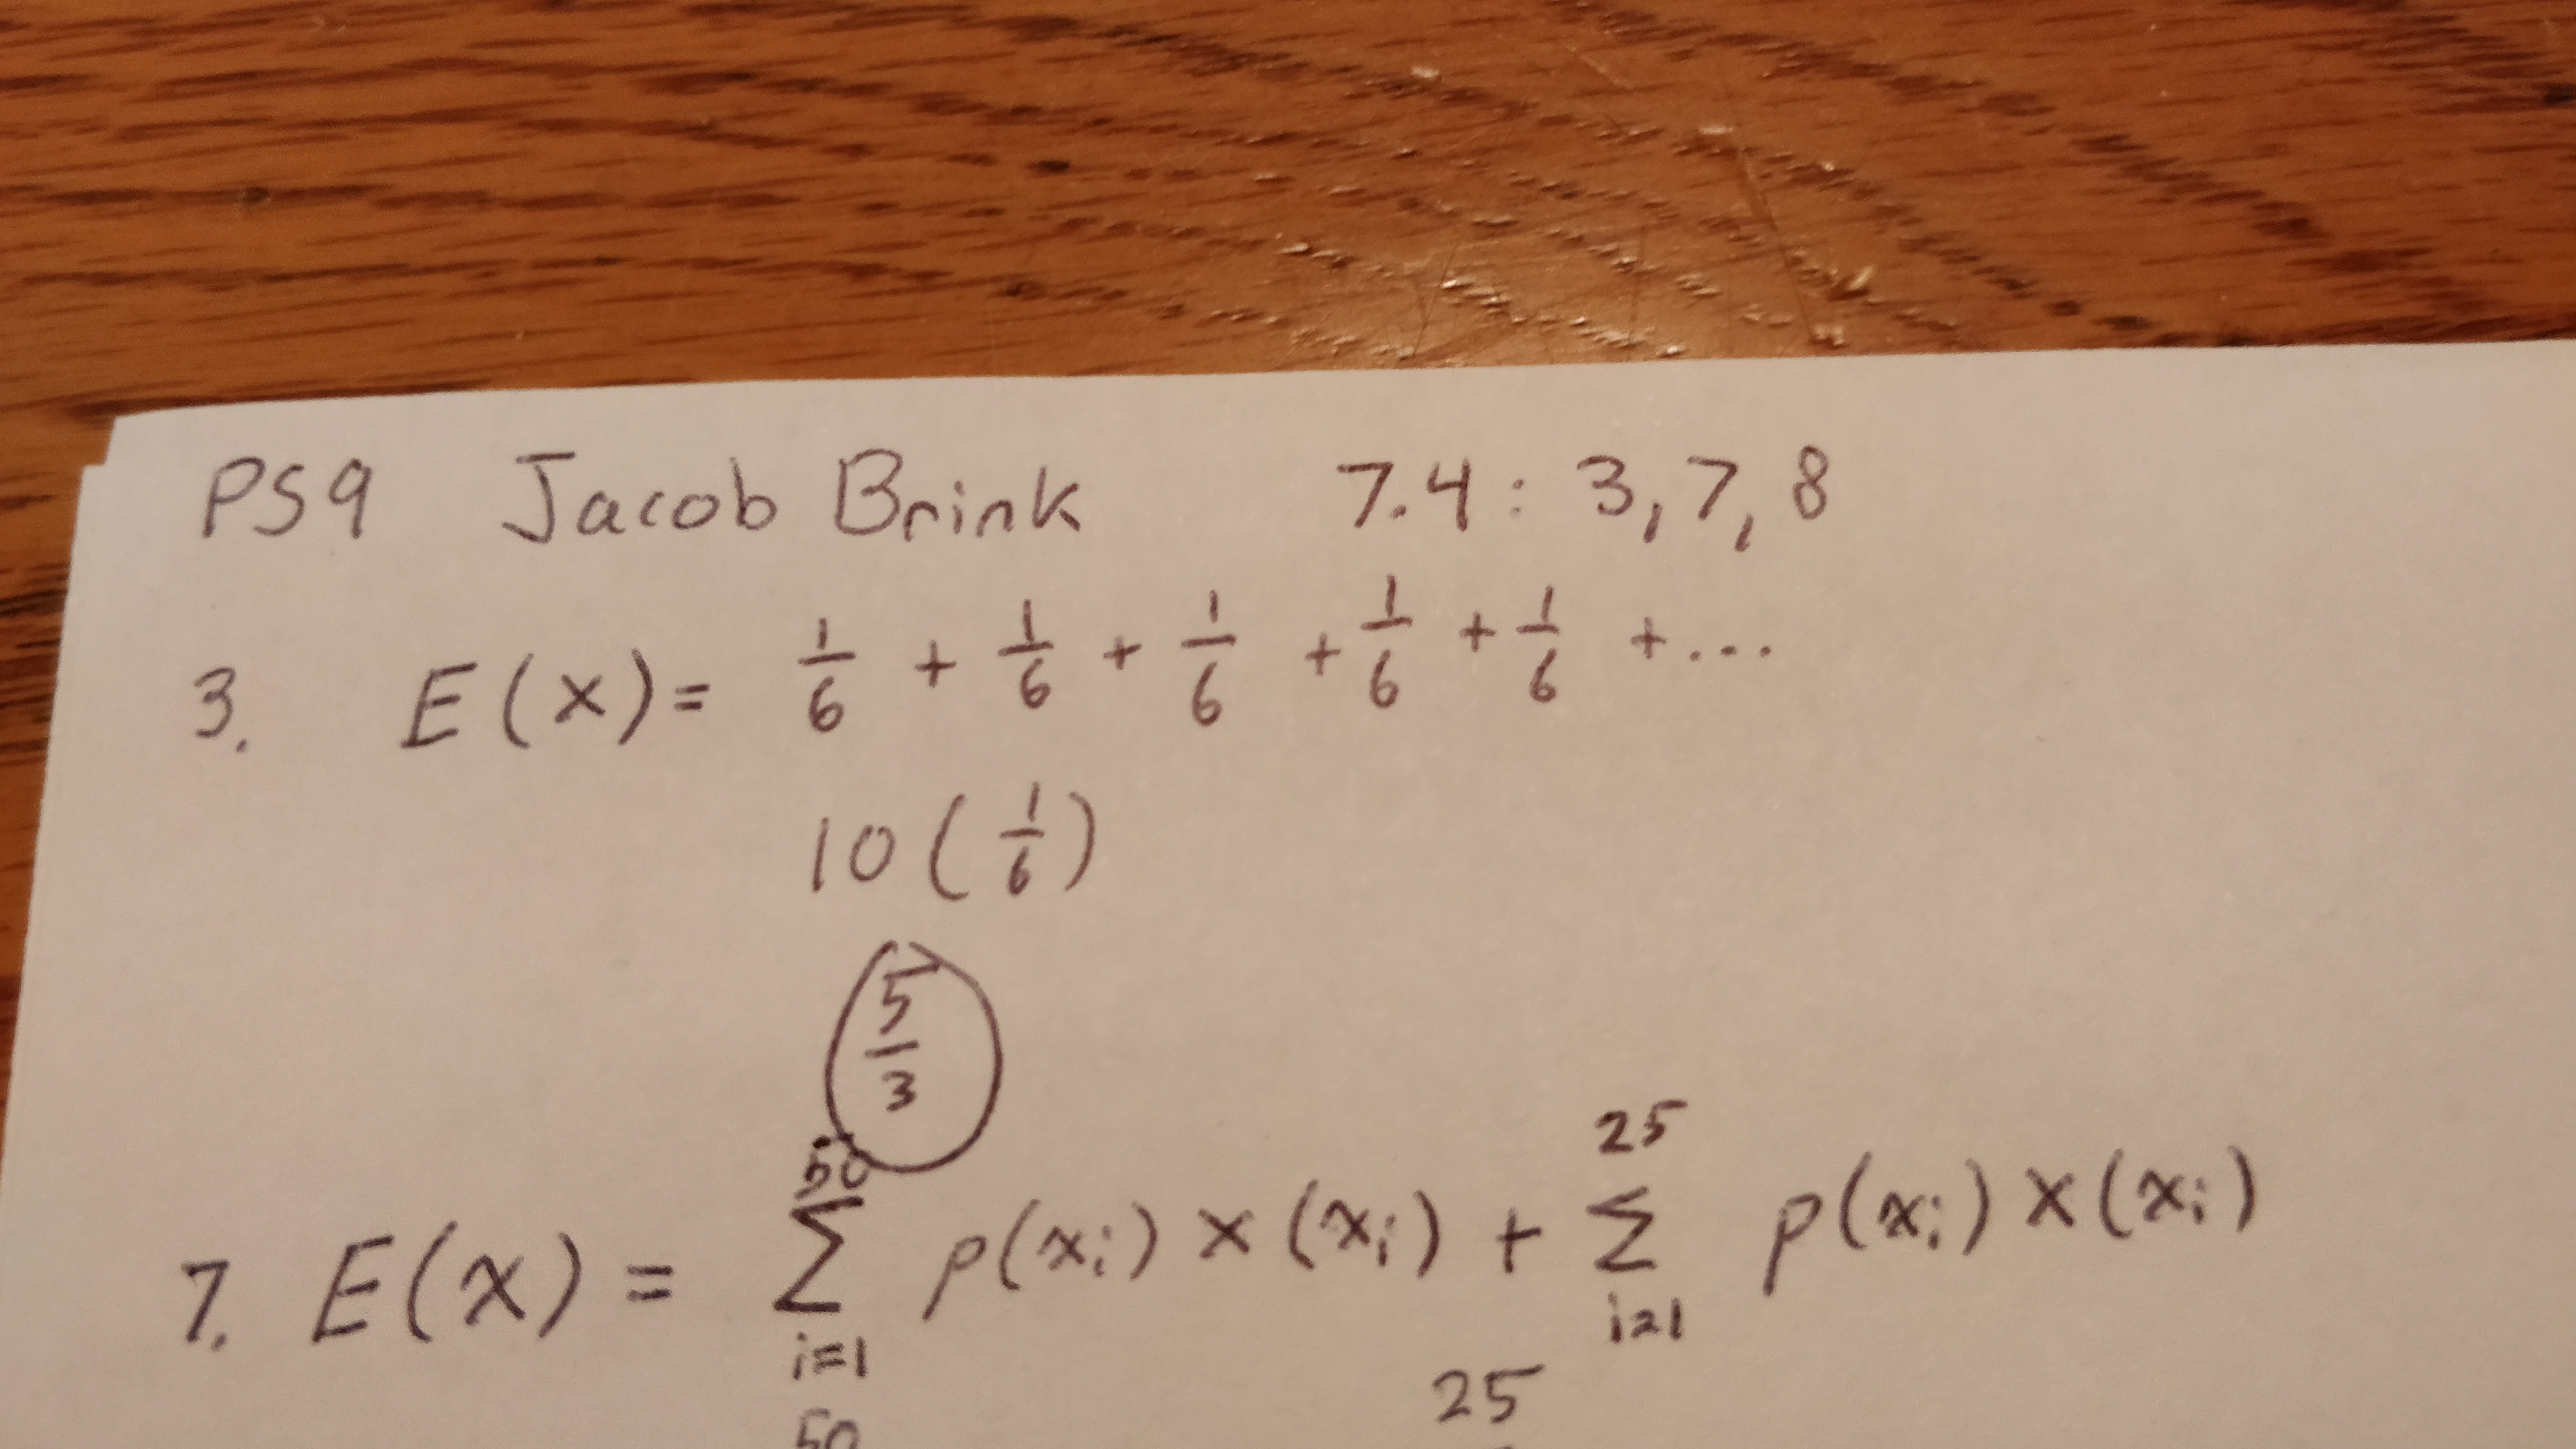 PS9 Jacob Brink 7.4: 3, 7, 8
3. E(x) = 1/6 + 1/6 + 1/6 + 1/6 + 1/6 + ...
10(1/6)
5/3
7. E(x) = 50 Σ i=1 p(xi) X(xi) + 25 Σ i=1 p(xi) X(xi)
50 25